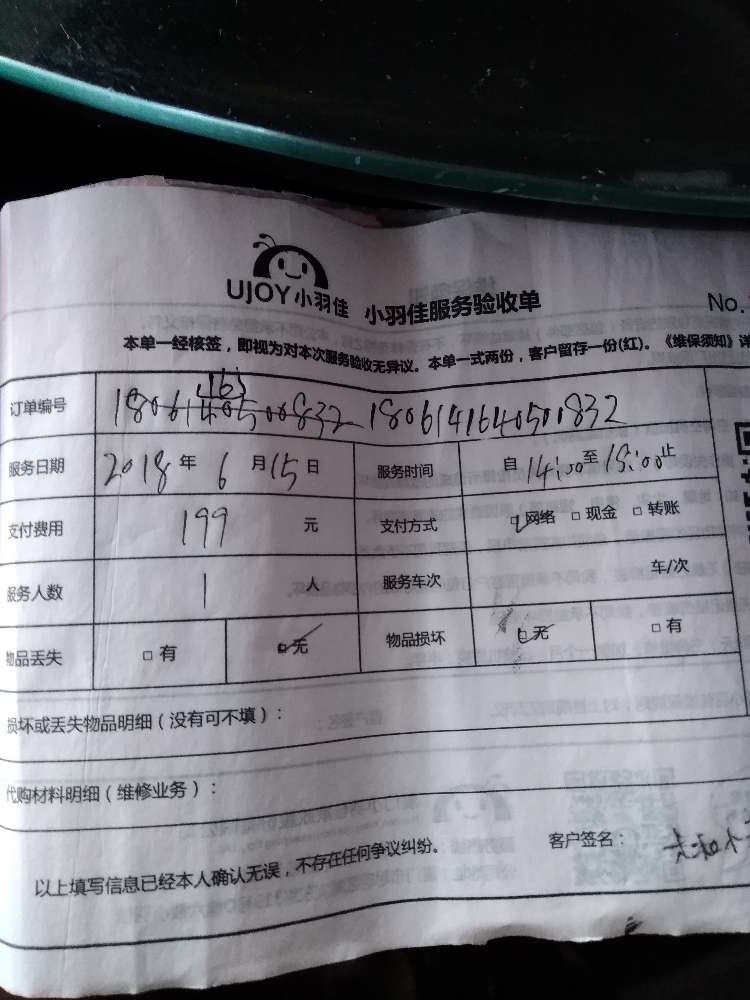 UJOY小羽佳 小羽佳服务验收单 No.
本单一经核签，即视为对本次服务验收无异议。本单一式两份，客户留存一份(红)。《维保须知》详
订单编号 (16) 1806140500832 1806141640501832
服务日期 2018年6月15日 服务时间 自14:00至15:00止
支付费用 199 元 支付方式 网络 □ 现金 □ 转账
服务人数 1 人 服务车次 车/次
物品丢失 □ 有 □ 无 物品损坏 □ 无 □ 有
损坏或丢失物品明细（没有可不填）：
代购材料明细（维修业务）：
以上填写信息已经本人确认无误，不存在任何争议纠纷。 客户签名：